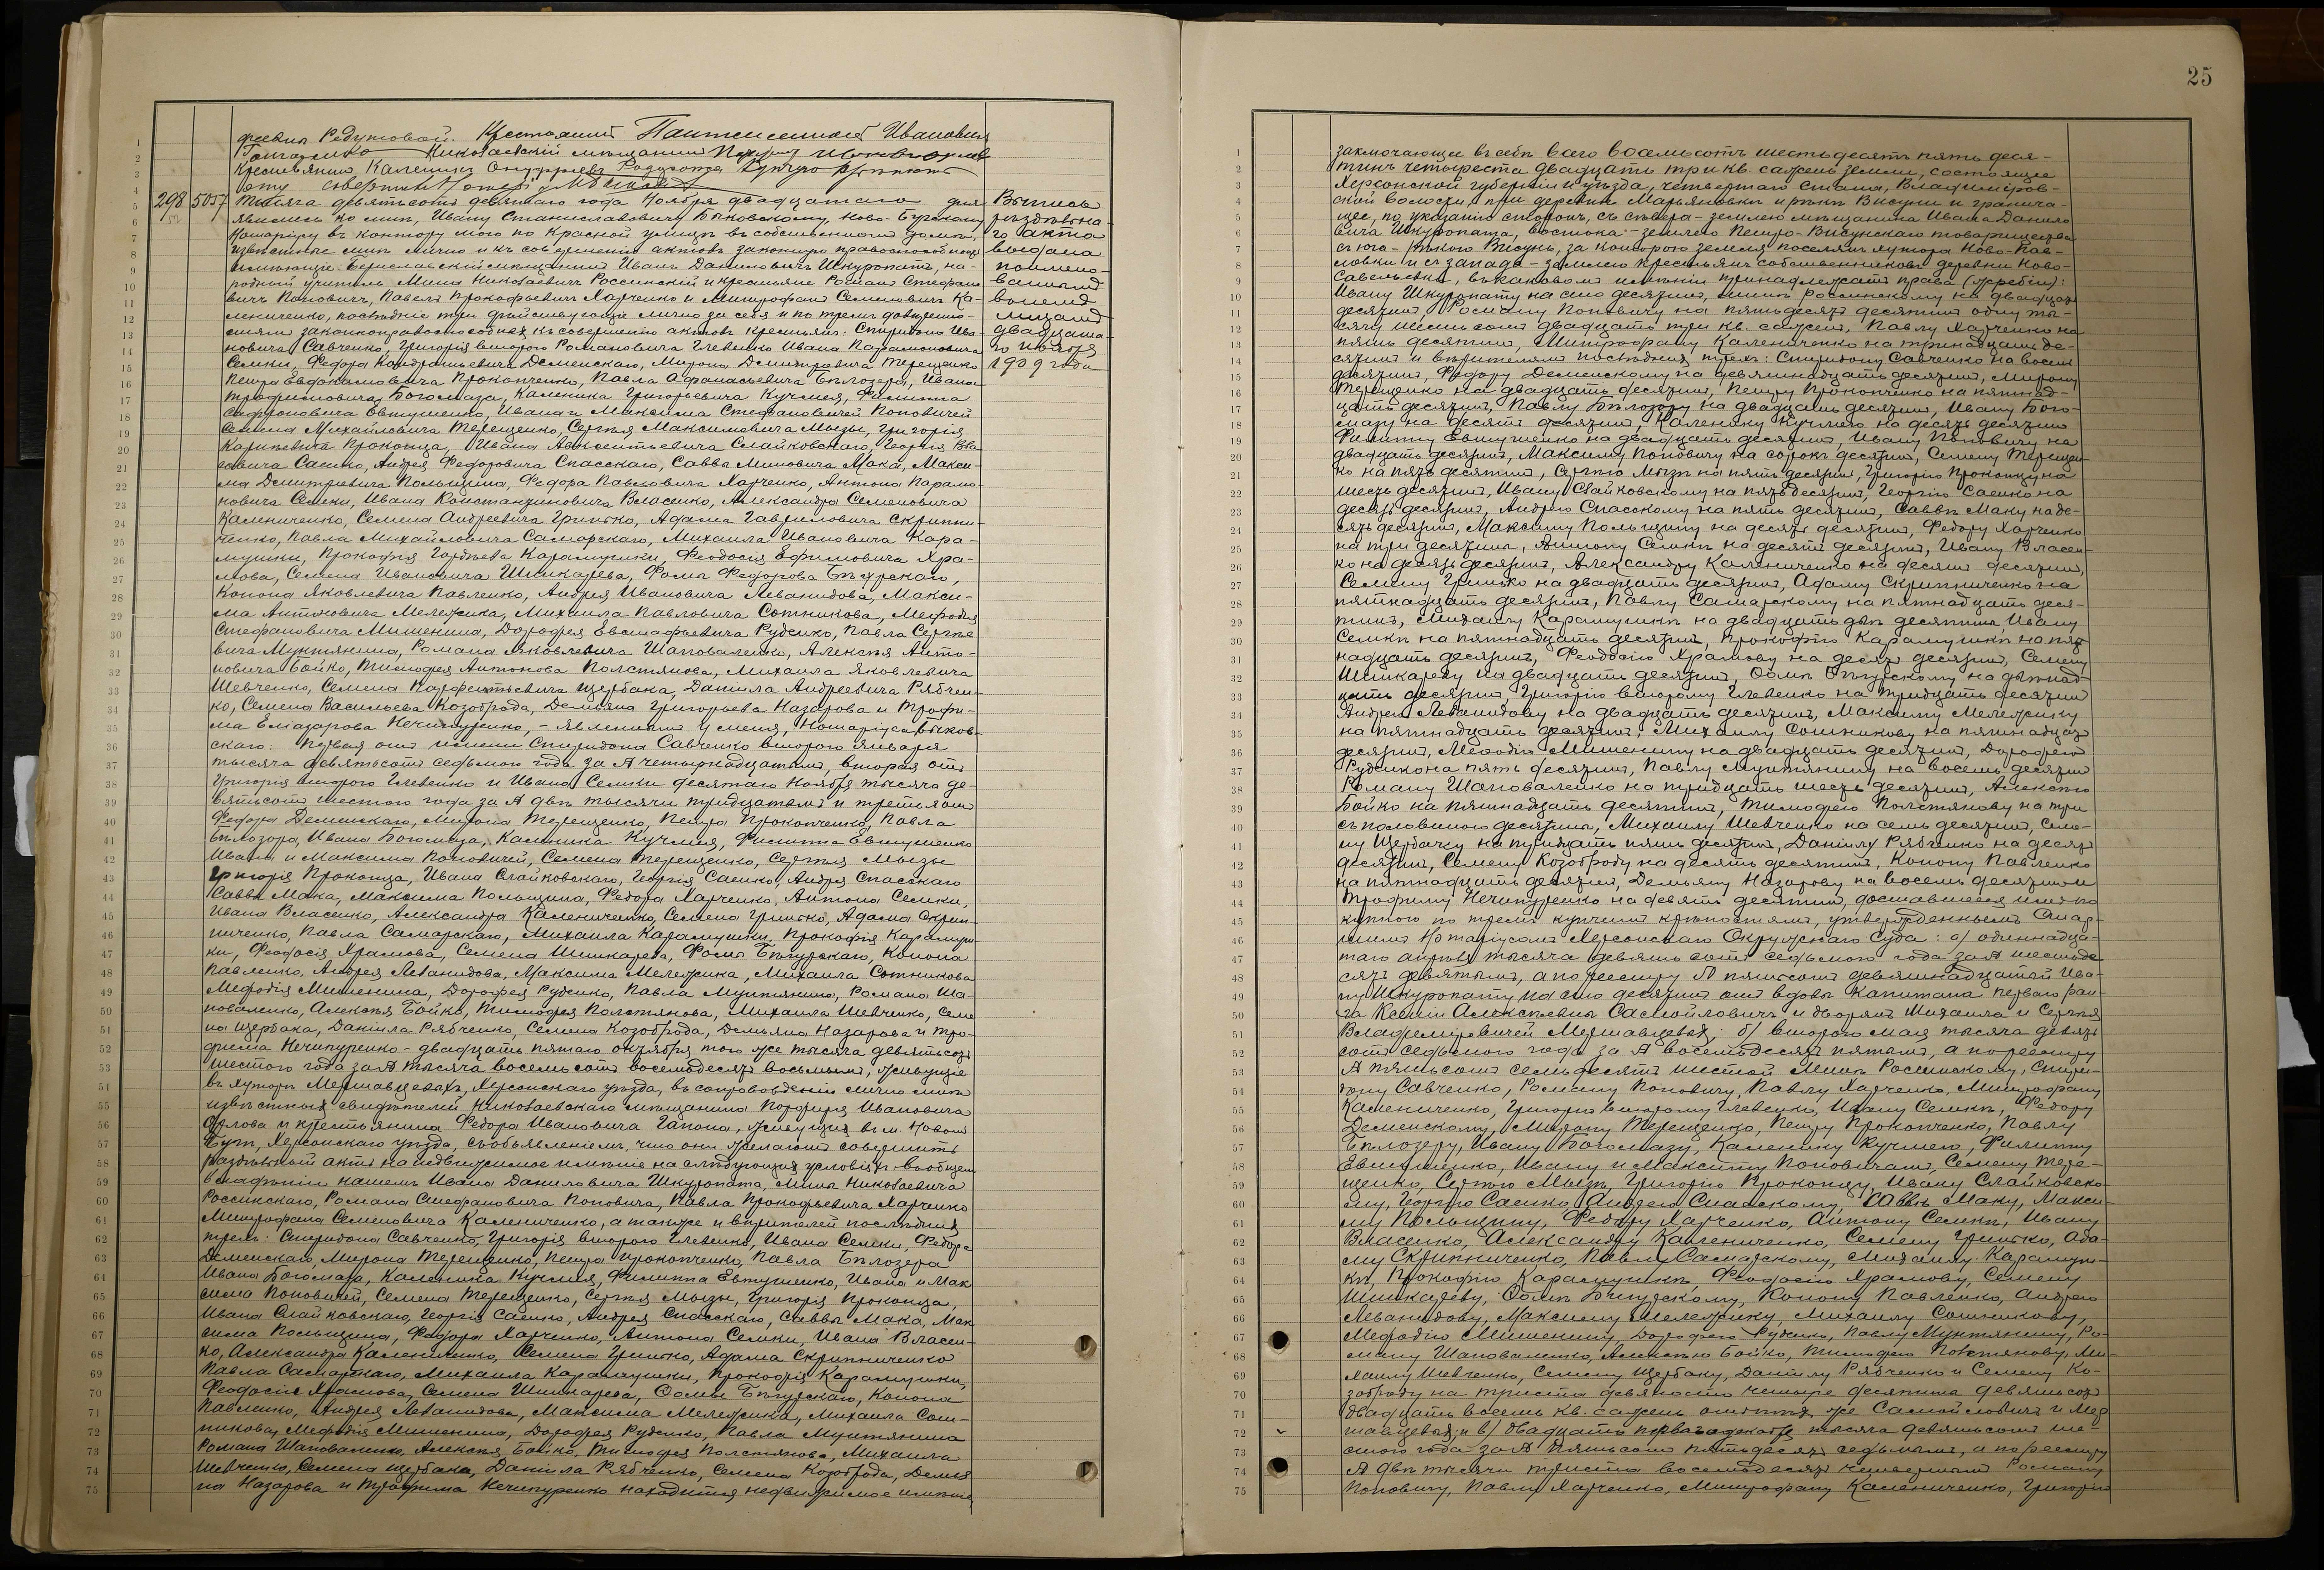 25
Редутовой. Крестьянинъ Пантелеимонъ Ивановичъ
Николаевскій мѣщанинъ
Крестьянинъ Каленикъ
298 5057 Тысяча девятьсотъ девятаго года Ноября двадцатаго дня
явились ко мнѣ, Ивану Станиславовичу Быковскому, Ново-Бугскому
Нотаріусу въ контору мою по Красной улицѣ въ собственномъ домѣ,
извѣстные мнѣ лично и къ совершенію актовъ законную правоспособность
имѣющіе: Бериславскій мѣщанинъ Иванъ Даниловичъ Шкуропатъ, на-
родный учитель Мина Николаевичъ Россинскій и крестьяне Романъ Стефано-
вичъ Поповичъ, Павелъ Прокофьевичъ Харченко и Митрофанъ Семеновичъ Ка-
лениченко, послѣдніе три дѣйствующіе лично за себя и по тремъ довѣренно-
стямъ законноправоспособныхъ къ совершенію актовъ крестьянъ: Спиридона Ива-
новича Савченко, Григорія второго Романовича Глевенко Ивана Парамоновича
Семки, Федора Кондратьевича Деменскаго, Мирона Димитріевича Терещенко
Петра Евдокимовича Прокопченко, Павла Афанасьевича Бѣлозера, Ивана
Трофимовича Богомаза, Каленика Григорьевича Кучмея, Филиппа
Сафроновича Евтушенко, Ивана и Максима Стефановичей Поповичей
Семена Михайловича Терещенко, Сергѣя Максимовича Мызы, Григорія
Карпьевича Прокопца, Ивана Авксентьевича Слайковскаго, Георгія Вла-
совича Саенко, Андрея Федоровича Спасскаго, Саввы Миновича Мака, Макси-
ма Дмитріевича Польщина, Федора Павловича Харченко, Антона Парамо-
новича Семки, Ивана Константиновича Власенко, Александра Семеновича
Калениченко, Семена Андреевича Гринько, Адама Гавриловича Скрипни-
ченко, Павла Михайловича Самарскаго, Михаила Ивановича Кара-
мушки, Прокофія Гордѣева Карамушки, Феодосія Ефимовича Хра-
мова, Семена Ивановича Шинкарева, Фомы Федорова Бѣгурскаго,
Конона Яковлевича Павленко, Андрея Ивановича Леванидова, Макси-
ма Антоновича Мележика, Михаила Павловича Сотникова, Мефодія
Стефановича Мишенина, Дорофея Евстафьевича Руденко, Павла Сергѣе-
вича Мунтянина, Романа Яковлевича Шаповаленко, Алексѣя Анто-
новича Бойко, Тимофея Антонова Полстянова, Михаила Яковлевича
Шевченко, Семена Парфентьевича Щербака, Даніила Андреевича Рябчен-
ко, Семена Васильева Козоброда, Демьяна Григорьева Назарова и Трофи-
ма Елизарова Нечипуренко, - явленнымъ у меня, Нотаріуса Быков-
скаго: первая отъ имени Спиридона Савченко второго Января
тысяча девятьсотъ седьмого года за № четырнадцатымъ, вторая отъ
Григорія второго Глевенко и Ивана Семки десятаго Ноября тысяча де-
вятьсотъ шестого года за № двѣ тысячи тридцатымъ и третья отъ
Федора Деменскаго, Мирона Терещенко, Петра Прокопченко, Павла
Бѣлозера, Ивана Богомаза, Каленика Кучмея, Филиппа Евтушенко
Ивана и Максима Поповичей, Семена Терещенко, Сергѣя Мызы
Григорія Прокопца, Ивана Слайковскаго, Георгія Саенко, Андрея Спасскаго
Саввы Мака, Максима Польщина, Федора Харченко, Антона Семки,
Ивана Власенко, Александра Калениченко, Семена Гринько, Адама Скрип-
ниченко, Павла Самарскаго, Михаила Карамушки, Прокофія Карамуш-
ки, Феодосія Храмова, Семена Шинкарева, Фомы Бѣгурскаго, Конона
Павленко, Андрея Леванидова, Максима Мележика, Михаила Сотникова
Мефодія Мишенина, Дорофея Руденко, Павла Мунтянина, Романа Ша-
поваленко, Алексѣя Бойко, Тимофея Полстянова, Михаила Шевченко, Семе-
на Щербака, Даніила Рябченко, Семена Козоброда, Демьяна Назарова и Тро-
фима Нечипуренко - двадцать пятаго октября того же тысяча девятьсотъ
шестого года за № тысяча восемьсотъ восемьдесятъ восьмымъ, живущіе
въ хуторѣ Мершавцевахъ, Херсонскаго уѣзда, въ сопровожденіи лично мнѣ
извѣстныхъ свидѣтелей Николаевскаго мѣщанина Порфирія Ивановича
Орлова и крестьянина Федора Ивановича Гапона, живущихъ въ м. Новомъ
Бугѣ, Херсонскаго уѣзда, съ объявленіемъ, что они желаютъ совершить
раздѣльный актъ на недвижимое имѣніе на слѣдующихъ условіяхъ: въ общемъ
владѣніи нашемъ Ивана Даниловича Шкуропата, Мины Николаевича
Россинскаго, Романа Стефановича Поповича, Павла Прокофьевича Харченко
Митрофана Семеновича Калениченко, а также и вѣрителей послѣднихъ
трехъ: Спиридона Савченко, Григорія второго Глевенко, Ивана Семки, Федора
Деменскаго, Мирона Терещенко, Петра Прокопченко, Павла Бѣлозера
Ивана Богомаза, Каленика Кучмея, Филиппа Евтушенко, Ивана и Мак-
сима Поповичей, Семена Терещенко, Сергѣя Мызы, Григорія Прокопца,
Ивана Слайковскаго, Георгія Саенко, Андрея Спасскаго, Саввы Мака, Мак-
сима Польщина, Федора Харченко, Антона Семки, Ивана Власен-
ко, Александра Калениченко, Семена Гринько, Адама Скрипниченко
Павла Самарскаго, Михаила Карамушки, Прокофія Карамушки,
Феодосія Храмова, Семена Шинкарева, Фомы Бѣгурскаго, Конона
Павленко, Андрея Леванидова, Максима Мележика, Михаила Сот-
никова, Мефодія Мишенина, Дорофея Руденко, Павла Мунтянина
Романа Шаповаленко, Алексѣя Бойко, Тимофея Полстянова, Михаила
Шевченко, Семена Щербака, Даніила Рябченко, Семена Козоброда, Демья-
на Назарова и Трофима Нечипуренко находится недвижимое имѣніе
Выпись
раздѣльна-
го акта
выдана
поимено-
ваннымъ
въ немъ
лицамъ
двадцата-
го Ноября
1909 года
заключающее въ себѣ всего восемьсотъ шестьдесятъ пять деся-
тинъ четыреста двадцать три кв. сажень земли, состоящее
Херсонской губерніи и уѣзда, четвертаго стана, Владиміров-
ской волости, при деревнѣ Марьяновкѣ и рѣкѣ Висуни и гранича-
щее, по указанію сторонъ, съ сѣвера - землею мѣщанина Ивана Данило-
вича Шкуропата, востока - землею Петро-Висунскаго товарищества
съ юга - рѣкою Висунь, за которою земля поселянъ хутора Ново-Пав-
ловки и съ запада - землею крестьянъ собственниковъ деревни Ново-
Савельевки, въ каковомъ имѣніи принадлежатъ права (жребіи):
Ивану Шкуропату на сто десятинъ, Минѣ Россинскому на двадцать
десятинъ, Роману Поповичу на пятьдесятъ десятинъ одну ты-
сячу шестьсотъ двадцать три кв. сажень, Павлу Харченко на
пять десятинъ, Митрофану Калениченко на тринадцать де-
сятинъ и вѣрителямъ послѣднихъ трехъ: Спиридону Савченко на восемь
десятинъ, Федору Деменскому на девятнадцать десятинъ, Мирону
Терещенко на двадцать десятинъ, Петру Прокопченко на пятнад-
цать десятинъ, Павлу Бѣлозеру на двадцать десятинъ, Ивану Бого-
мазу на десять десятинъ, Каленику Кучмею на десять десятинъ
Филиппу Евтушенко на двадцать десятинъ, Ивану Поповичу на
двадцать десятинъ, Максиму Поповичу на сорокъ десятинъ, Семену Терещен-
ко на пять десятинъ, Сергѣю Мызѣ на пять десятинъ, Григорію Прокопцу на
шесть десятинъ, Ивану Слайковскому на пять десятинъ, Георгію Саенко на
десять десятинъ, Андрею Спасскому на пять десятинъ, Саввѣ Маку на де-
сять десятинъ, Максиму Польщину на десять десятинъ, Федору Харченко
на три десятины, Антону Семкѣ на десять десятинъ, Ивану Власен-
ко на десять десятинъ, Александру Калениченко на десять десятинъ,
Семену Гринько на двадцать десятинъ, Адаму Скрипниченко на
пятнадцать десятинъ, Павлу Самарскому на пятнадцать деся-
тинъ, Михаилу Карамушкѣ на двадцать двѣ десятины Ивану
Семкѣ на пятнадцать десятинъ, Прокофію Карамушкѣ на пят-
надцать десятинъ, Феодосію Храмову на десять десятинъ, Семену
Шинкареву на двадцать десятинъ, Фомѣ Бѣгурскому на двѣнад-
цать десятинъ, Григорію второму Глевенко на тридцать десятинъ
Андрею Леванидову на двадцать десятинъ, Максиму Мележику
на пятнадцать десятинъ, Михаилу Сотникову на пятнадцать
десятинъ, Мефодію Мишенину на двадцать десятинъ, Дорофею
Руденко на пять десятинъ, Павлу Мунтянину на восемь десятинъ
Роману Шаповаленко на тридцать шесть десятинъ, Алексѣю
Бойко на пятнадцать десятинъ, Тимофею Полстянову на три
съ половиною десятины, Михаилу Шевченко на семь десятинъ, Семе-
ну Щербаку на тридцать пять десятинъ, Даніилу Рябченко на десять
десятинъ, Семену Козоброду на десять десятинъ, Конону Павленко
на пятнадцать десятинъ, Демьяну Назарову на восемь десятинъ и
Трофиму Нечипуренко на девять десятинъ, доставшееся имъ по
купчимъ по тремъ купчимъ крѣпостямъ, утвержденнымъ Стар-
шимъ Нотаріусомъ Херсонскаго Окружнаго Суда: а) одиннадца-
таго апрѣля тысяча девятьсотъ седьмого года за № шестьде-
сятъ девятымъ, а по реестру № пятьсотъ девятнадцатый Ива-
ну Шкуропату на сто десятинъ отъ вдовы Капитана перваго ран-
га Ксеніи Алексѣевны Самойловичъ и дворянъ Михаила и Сергѣя
Владиміровичей Мершавцевыхъ; б) второго Мая тысяча девять-
сотъ седьмого года за № восемьдесятъ пятымъ, а по реестру
№ пятьсотъ семьдесятъ шестой Минѣ Россинскому, Спири-
дону Савченко, Роману Поповичу, Павлу Харченко, Митрофану
Калениченко, Григорію второму Глевенко, Ивану Семкѣ, Федору
Деменскому, Мирону Терещенко, Петру Прокопченко, Павлу
Бѣлозеру, Ивану Богомазу, Каленику Кучмею, Филиппу
Евтушенко, Ивану и Максиму Поповичамъ, Семену Тере-
щенко, Сергѣю Мызѣ, Григорію Прокопцу, Ивану Слайковско-
му, Георгію Саенко, Андрею Спасскому, Саввѣ Маку, Макси-
му Польщину, Федору Харченко, Антону Семкѣ, Ивану
Власенко, Александру Калениченко, Семену Гринько, Ада-
му Скрипниченко, Павлу Самарскому, Михаилу Карамуш-
кѣ, Прокофію Карамушкѣ, Феодосію Храмову, Семену
Шинкареву, Фомѣ Бѣгурскому, Конону Павленко, Андрею
Леванидову, Максиму Мележику, Михаилу Сотникову,
Мефодію Мишенину, Дорофею Руденко, Павлу Мунтянину, Ро-
ману Шаповаленко, Алексѣю Бойко, Тимофею Полстянову, Ми-
хаилу Шевченко, Семену Щербаку, Даніилу Рябченко и Семену Ко-
зоброду на триста девяносто четыре десятины девятьсотъ
двадцать восемь кв. сажень отъ тѣхъ же Самойловичъ и Мер-
шавцевыхъ, и в) двадцать перваго декабря тысяча девятьсотъ ше-
стого года за № пятьсотъ пятьдесятъ седьмымъ, а по реестру
№ двѣ тысячи триста восемьдесятъ четвертымъ Роману
Поповичу, Павлу Харченко, Митрофану Калениченко, Григорію